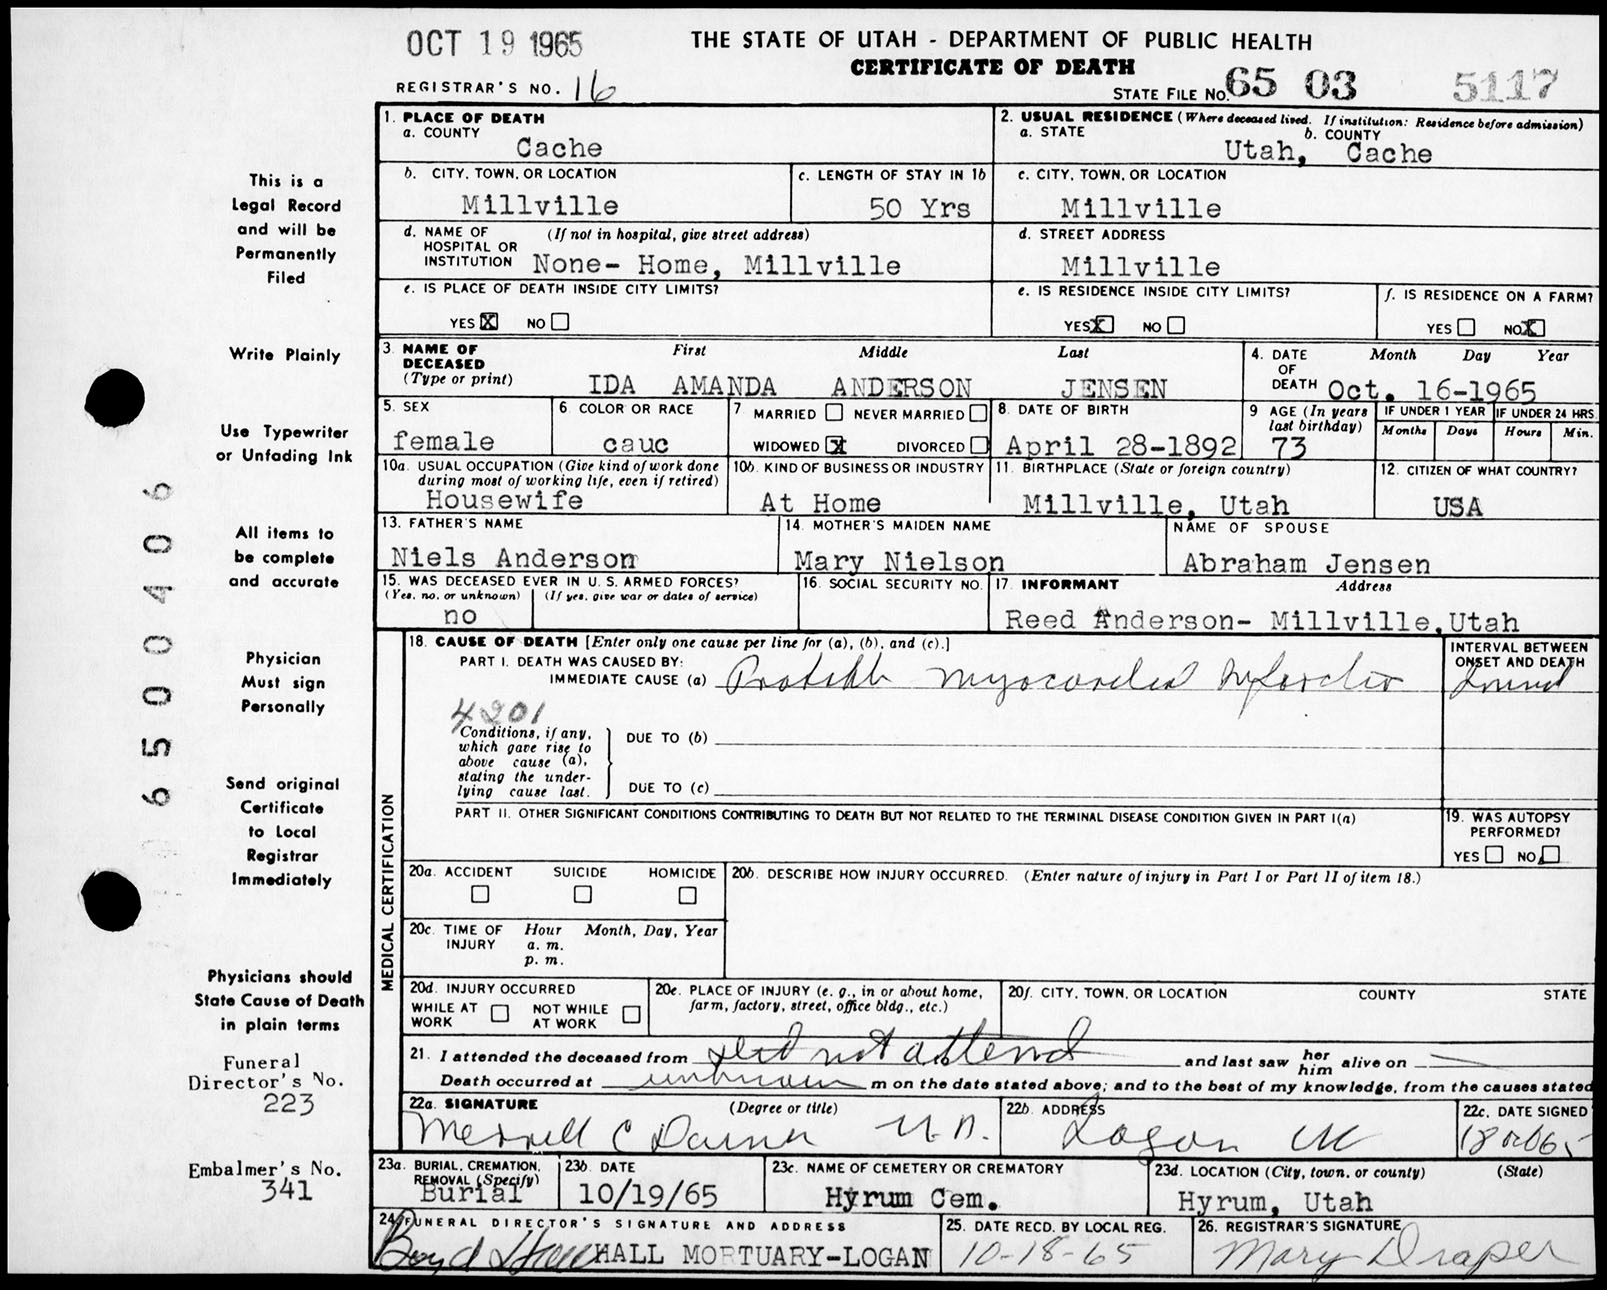 OCT 19 1965
THE STATE OF UTAH - DEPARTMENT OF PUBLIC HEALTH
CERTIFICATE OF DEATH
REGISTRAR'S NO. 16
STATE FILE NO. 65 03 5117
1. PLACE OF DEATH
a. COUNTY
Cache
2. USUAL RESIDENCE (Where deceased lived. If institution: Residence before admission)
a. STATE b. COUNTY
Utah, Cache
b. CITY, TOWN, OR LOCATION
Millville
c. LENGTH OF STAY IN 1b
50 Yrs
c. CITY, TOWN, OR LOCATION
Millville
d. NAME OF HOSPITAL OR INSTITUTION (If not in hospital, give street address)
None- Home, Millville
d. STREET ADDRESS
Millville
e. IS PLACE OF DEATH INSIDE CITY LIMITS?
YES X NO
e. IS RESIDENCE INSIDE CITY LIMITS?
YES X NO
f. IS RESIDENCE ON A FARM?
YES NO X
3. NAME OF DECEASED (Type or print)
First Middle Last
IDA AMANDA ANDERSON JENSEN
4. DATE OF DEATH Month Day Year
Oct. 16-1965
5. SEX
female
6. COLOR OR RACE
cauc
7. MARRIED NEVER MARRIED
WIDOWED X DIVORCED
8. DATE OF BIRTH
April 28-1892
9 AGE (In years last birthday)
73
IF UNDER 1 YEAR
Months Days
IF UNDER 24 HRS.
Hours Min.
10a. USUAL OCCUPATION (Give kind of work done during most of working life, even if retired)
Housewife
10b. KIND OF BUSINESS OR INDUSTRY
At Home
11. BIRTHPLACE (State or foreign country)
Millville, Utah
12. CITIZEN OF WHAT COUNTRY?
USA
13. FATHER'S NAME
Niels Anderson
14. MOTHER'S MAIDEN NAME
Mary Nielson
NAME OF SPOUSE
Abraham Jensen
15. WAS DECEASED EVER IN U.S. ARMED FORCES?
(Yes, no, or unknown) (If yes, give war or dates of service)
no
16. SOCIAL SECURITY NO.
17. INFORMANT Address
Reed Anderson- Millville, Utah
MEDICAL CERTIFICATION
18. CAUSE OF DEATH [Enter only one cause per line for (a), (b), and (c).]
PART I. DEATH WAS CAUSED BY:
IMMEDIATE CAUSE (a) Probable Myocardial Infarction
INTERVAL BETWEEN ONSET AND DEATH
4201
Conditions, if any, which gave rise to above cause (a), stating the underlying cause last.
DUE TO (b)
DUE TO (c)
PART II. OTHER SIGNIFICANT CONDITIONS CONTRIBUTING TO DEATH BUT NOT RELATED TO THE TERMINAL DISEASE CONDITION GIVEN IN PART I(a)
19. WAS AUTOPSY PERFORMED?
YES NO
20a. ACCIDENT SUICIDE HOMICIDE
20b. DESCRIBE HOW INJURY OCCURRED. (Enter nature of injury in Part I or Part II of item 18.)
20c. TIME OF INJURY Hour Month, Day, Year
a. m.
p. m.
20d. INJURY OCCURRED
WHILE AT WORK NOT WHILE AT WORK
20e. PLACE OF INJURY (e. g., in or about home, farm, factory, street, office bldg., etc.)
20f. CITY, TOWN, OR LOCATION COUNTY STATE
21. I attended the deceased from did not attend and last saw her him alive on
Death occurred at unknown m on the date stated above; and to the best of my knowledge, from the causes stated
22a. SIGNATURE (Degree or title)
Merrill C Daines M.D.
22b. ADDRESS
Logan Ut
22c. DATE SIGNED
18 Oct 65
23a. BURIAL, CREMATION, REMOVAL (Specify)
Burial
23b. DATE
10/19/65
23c. NAME OF CEMETERY OR CREMATORY
Hyrum Cem.
23d. LOCATION (City, town, or county) (State)
Hyrum, Utah
24. FUNERAL DIRECTOR'S SIGNATURE AND ADDRESS
Boyd Hall HALL MORTUARY-LOGAN
25. DATE RECD. BY LOCAL REG.
10-18-65
26. REGISTRAR'S SIGNATURE
Mary Draper
This is a
Legal Record
and will be
Permanently
Filed
Write Plainly
Use Typewriter
or Unfading Ink
All items to
be complete
and accurate
Physician
Must sign
Personally
Send original
Certificate
to Local
Registrar
Immediately
Physicians should
State Cause of Death
in plain terms
Funeral
Director's No.
223
Embalmer's No.
341
6500406